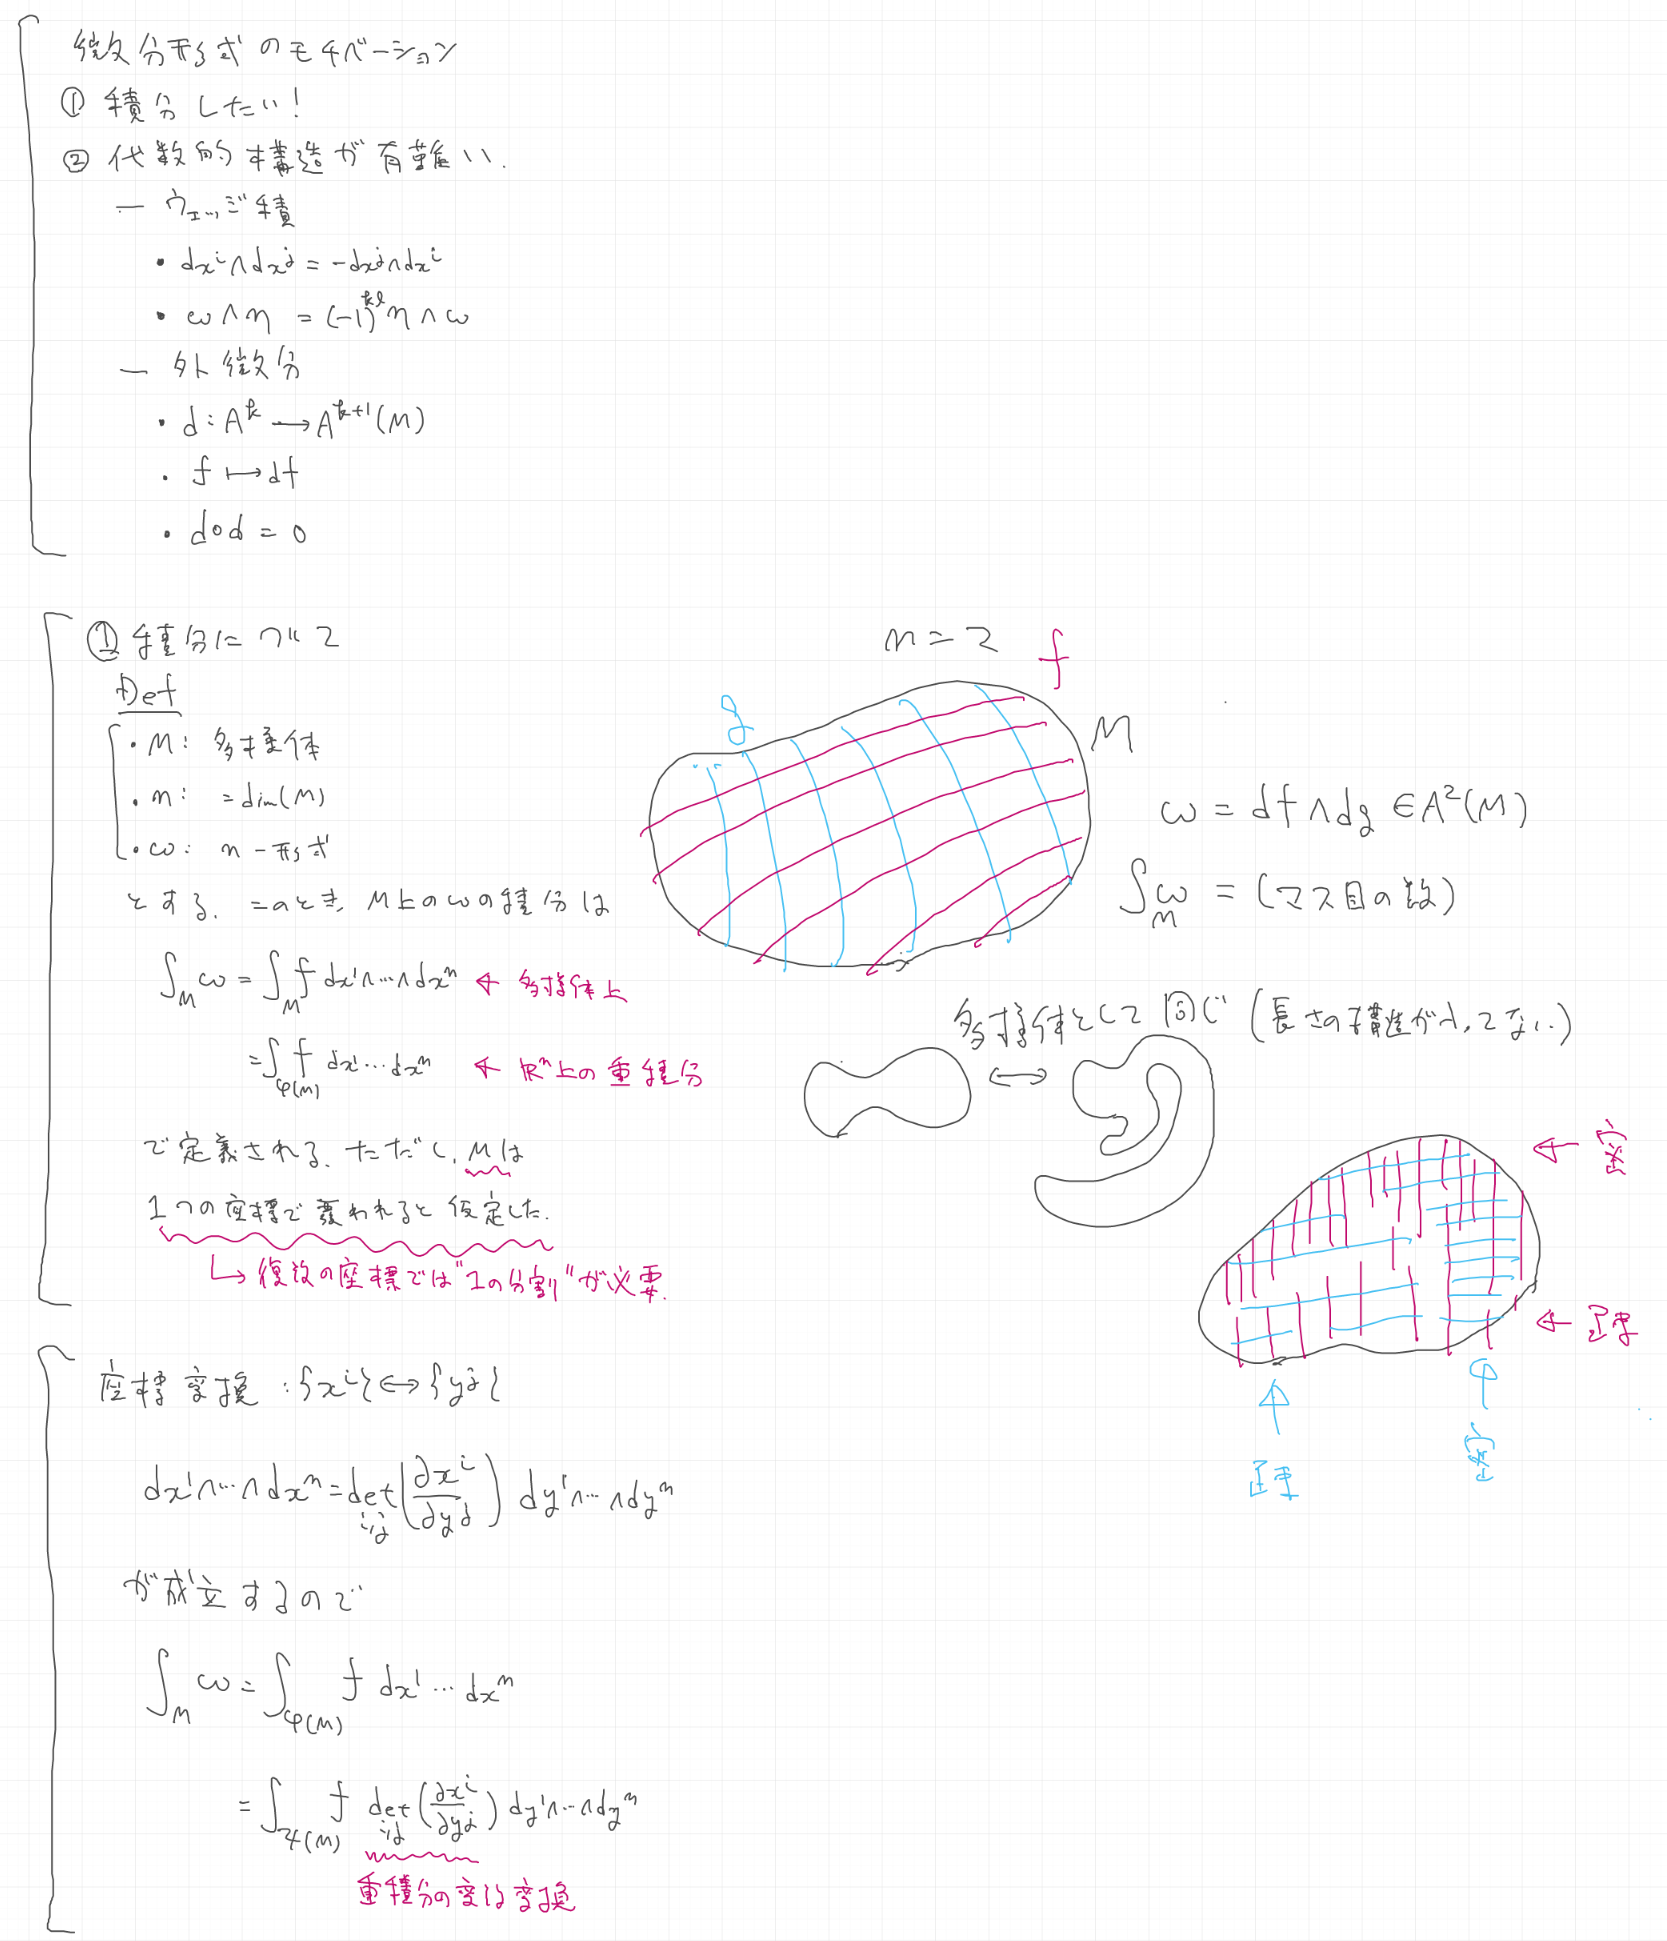 微分形式のモチベーション
① 積分したい!
② 代数的構造が有難い.
— ウェッジ積
• dxⁱ∧dxʲ = -dxʲ∧dxⁱ
• ω∧η = (-1)^{kl} η∧ω
— 外微分
• d : Aᵏ → Aᵏ⁺¹(M)
• f ↦ df
• d∘d = 0
① 積分について
Def
• M : 多様体
• n : = dim(M)
• ω : n-形式
とする. このとき, M上のωの積分は
∫_M ω = ∫_M f dx¹∧…∧dxⁿ ← 多様体上
= ∫_{φ(M)} f dx¹…dxⁿ ← ℝⁿ上の重積分
で定義される. ただし, Mは
1つの座標で覆われると仮定した.
↳ 複数の座標では"1の分割"が必要.
n = 2
f
g
M
ω = df∧dg ∈ A²(M)
∫_M ω = (マス目の数)
多様体として同じ (長さの構造が入ってない)
← 密
← 疎
↑ ↑
疎 密
座標変換 : {xⁱ} ↔ {yʲ}
dx¹∧…∧dxⁿ = det_{i,j}(∂xⁱ/∂yʲ) dy¹∧…∧dyⁿ
が成立するので
∫_M ω = ∫_{φ(M)} f dx¹…dxⁿ
= ∫_{ψ(M)} f det_{i,j}(∂xⁱ/∂yʲ) dy¹∧…∧dyⁿ
重積分の変数変換